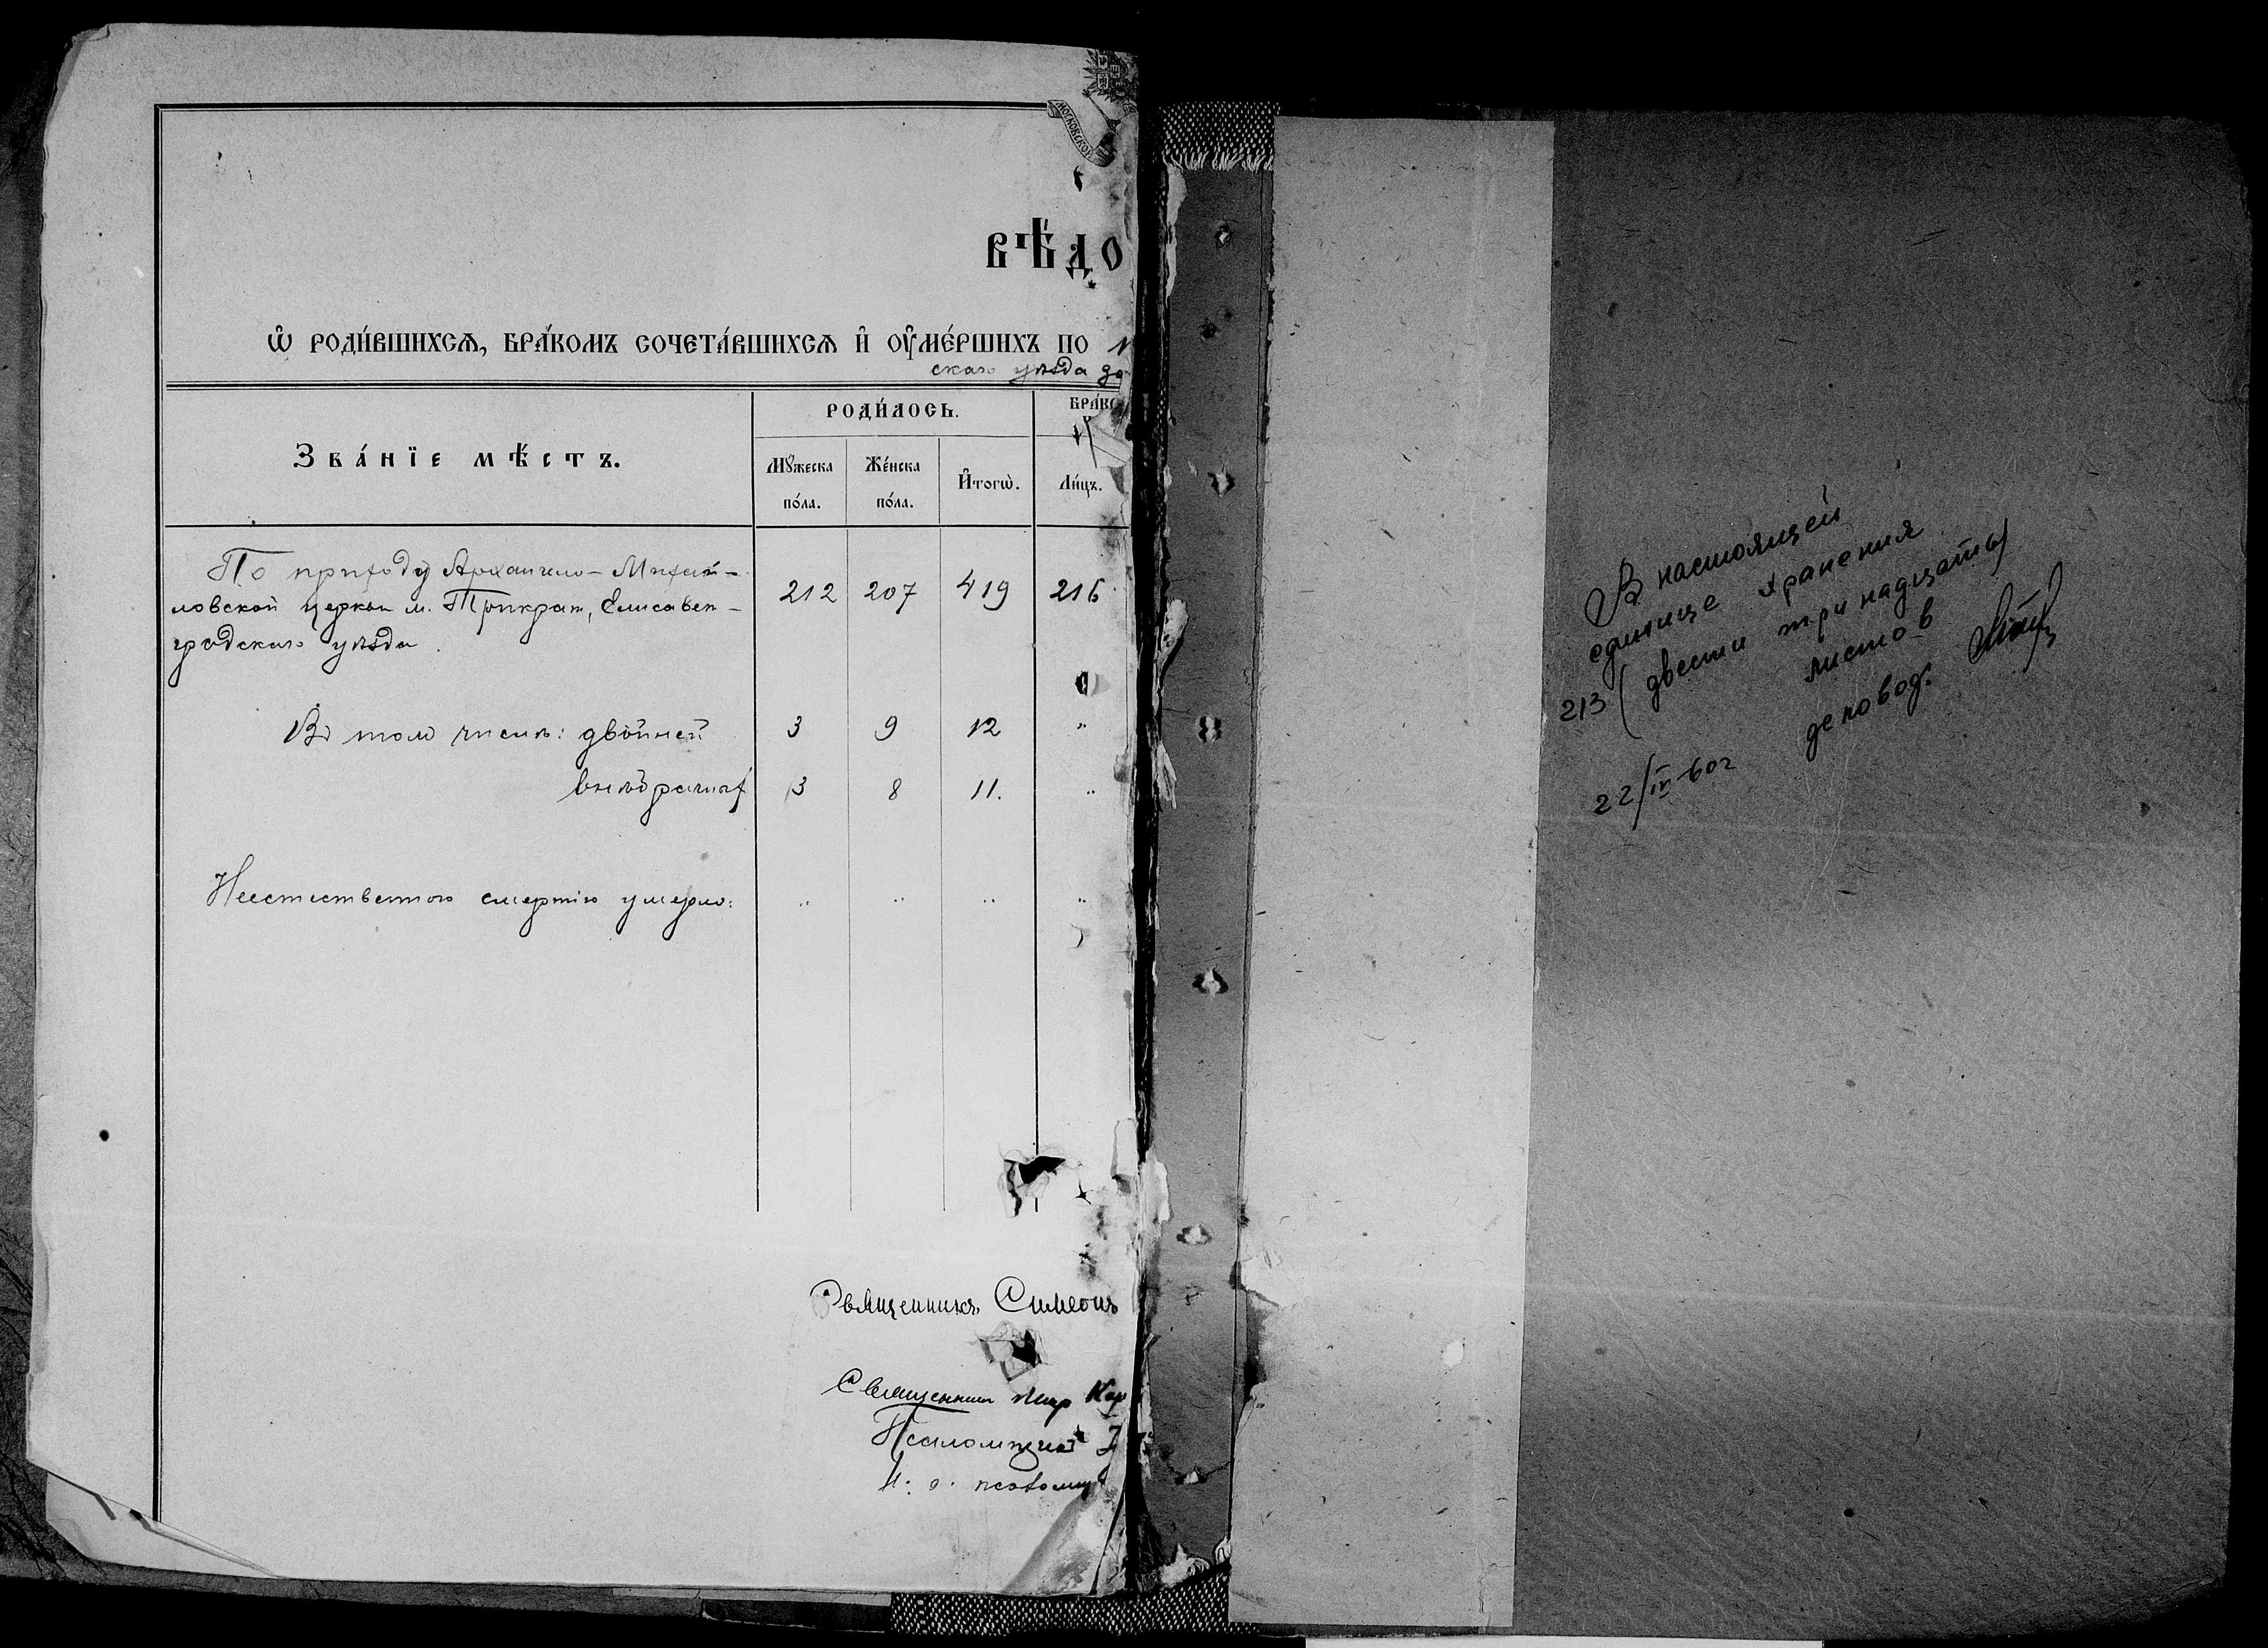 МОСКОВСКОЙ
ВѢ́ДО
Ѡ҆ РОДИ́ВШИХСѦ, БРА́КОМЪ СОЧЕТА́ВШИХСѦ И҆ ОУ҆МЕ́РШИХЪ ПО
скаго уѣзда
Зва́нїе мѣ́стъ.
РОДИ́ЛОСЬ.
БРА́КО
Мꙋ́жеска по́ла.
Же́нска по́ла.
И҆тогѡ̀.
Ли́цъ.
По приходу Архангело-Михай-
ловской церкви м. Трикрат, Елисавет-
градскаго уѣзда.
212 207 419 216
Въ томъ числѣ: двойней 3 9 12 "
внѣбрачных 3 8 11. "
Неестественною смертію умерло: " " " "
Священникъ Симеонъ
Священник Кар
Псаломщикъ
И. о. псаломщ
В настоящей
единице хранения
213 (двести тринадцать)
листов
деловод.
22/IV-60г